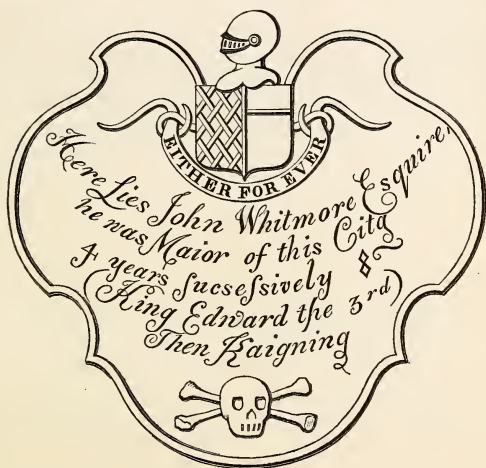 EITHER FOR EVER
Here Lies John Whitmore Esquire,
he was Maior of this City
4 years sucsessively &
(King Edward the 3rd)
Then Raigning